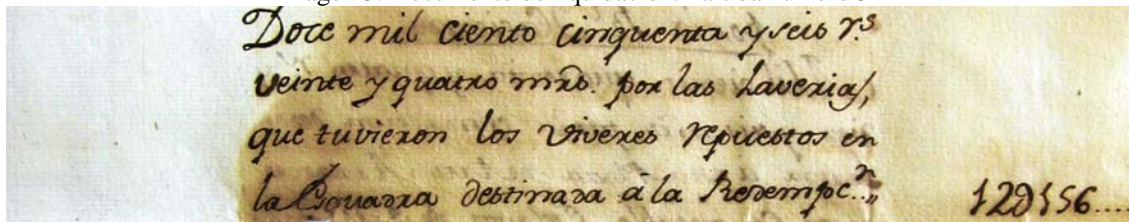 Doce mil ciento cinquenta y seis r.s
veinte y quatro mrs. por las haverias,
que tuvieron los viveres repuestos en
la Esquadra destinada â la Redempc.n,, 12D156....